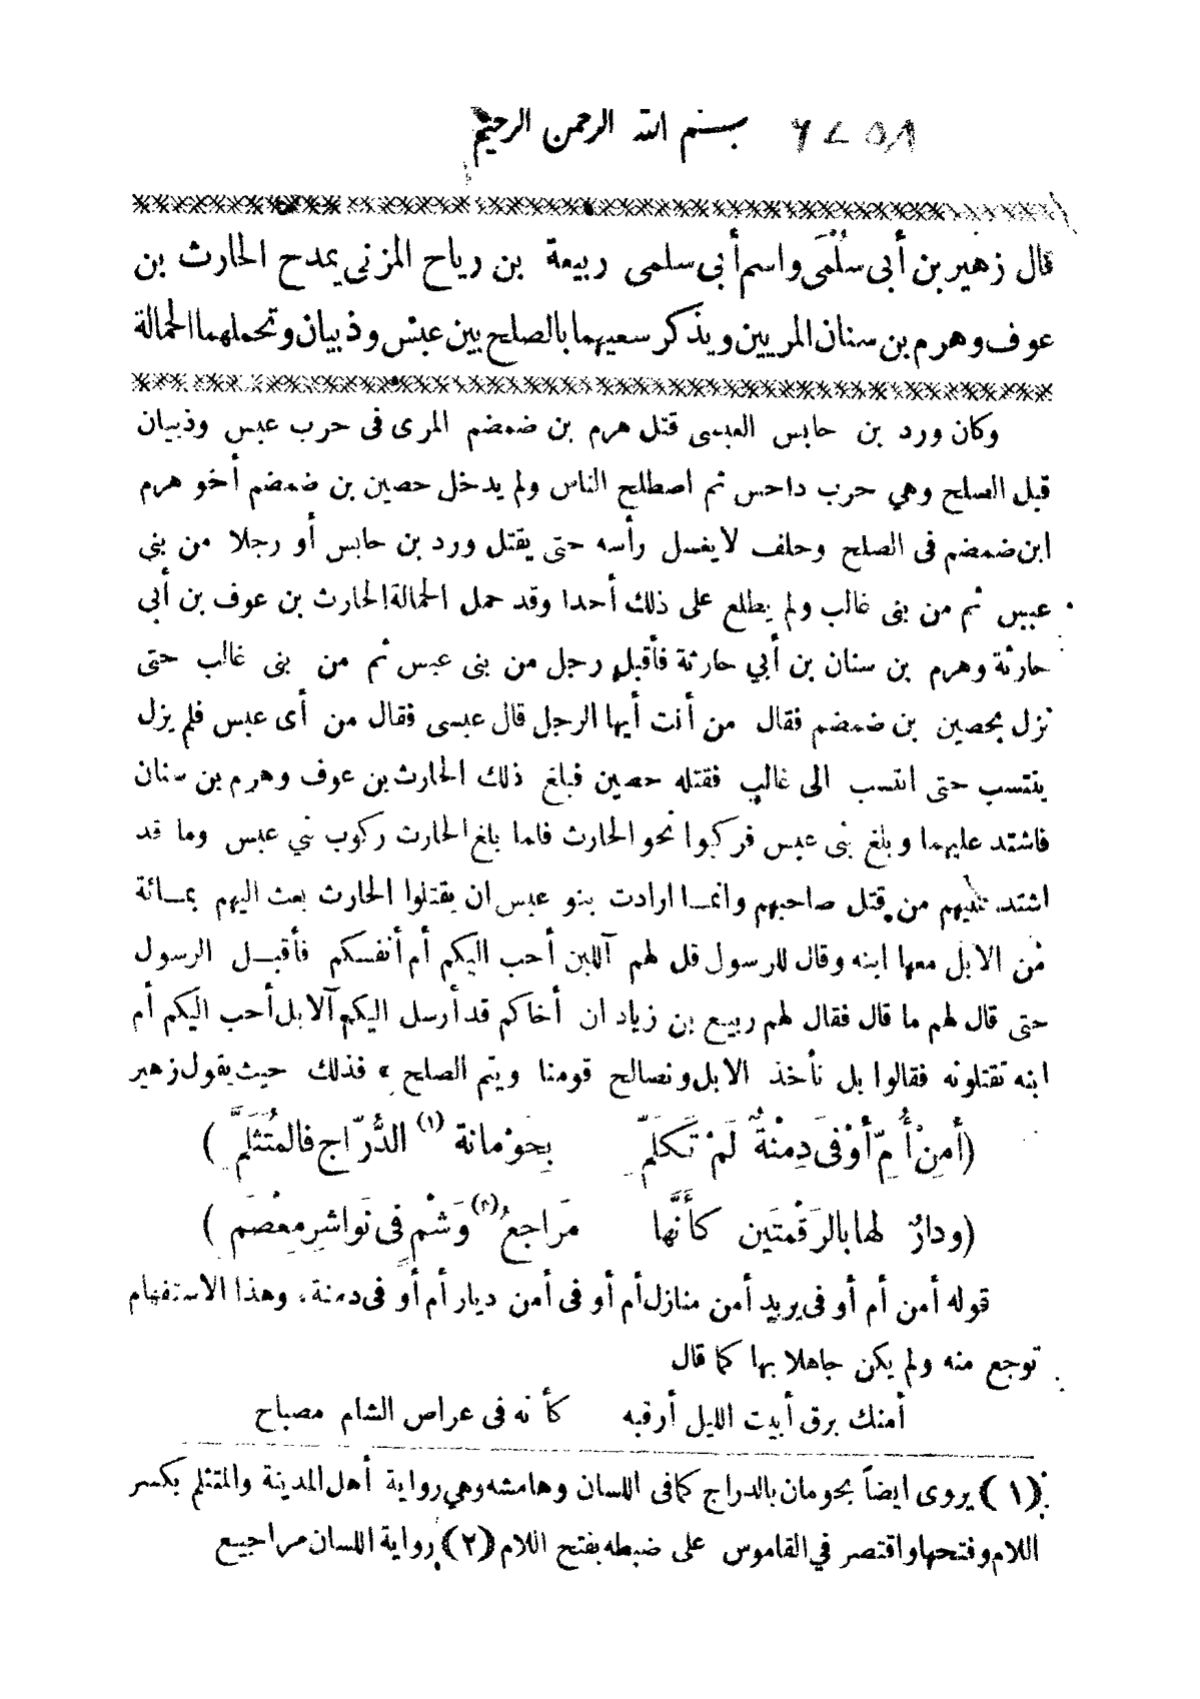 بسم الله الرحمن الرحيم
قال زهير بن أبى سُلْمَى واسم أبى سلمى ربيعة بن رياح المزنى يمدح الحارث بن
عوف وهرم بن سنان المريين ويذكر سعيهما بالصلح بين عبس وذبيان وتحملهما الحمالة
وكان ورد بن حابس العبسى قتل هرم بن ضمضم المرى فى حرب عبس وذبيان
قبل الصلح وهي حرب داحس ثم اصطلح الناس ولم يدخل حصين بن ضمضم أخو هرم
ابن ضمضم فى الصلح وحلف لا يغسل رأسه حتى يقتل ورد بن حابس أو رجلا من بنى
عبس ثم من بنى غالب ولم يطلع على ذلك أحدا وقد حمل الحمالة الحارث بن عوف بن أبى
حارثة وهرم بن سنان بن أبي حارثة فأقبل رجل من بنى عبس ثم من بنى غالب حتى
نزل بحصين بن ضمضم فقال من أنت أيها الرجل قال عبسى فقال من أى عبس فلم يزل
ينتسب حتى انتسب الى غالب فقتله حصين فبلغ ذلك الحارث بن عوف وهرم بن سنان
فاشتد عليهما وبلغ بنى عبس فركبوا نحو الحارث فلما بلغ الحارث ركوب بني عبس وما قد
اشتد عليهم من قتل صاحبهم وانما ارادت بنو عبس ان يقتلوا الحارث بعث اليهم بمائة
من الابل معها ابنه وقال للرسول قل لهم آللبن أحب اليكم أم أنفسكم فأقبل الرسول
حتى قال لهم ما قال فقال لهم ربيع بن زياد ان أخاكم قد أرسل اليكم آلابل أحب اليكم أم
ابنه تقتلونه فقالوا بل نأخذ الابل ونصالح قومنا ويتم الصلح » فذلك حيث يقول زهير
(أَمِنْ أُمِّ أَوْفَى دِمْنَةٌ لَمْ تَكَلَّمِ بِحَوْمانة (١) الدُّرّاج فالمُتَثَلَّمِ)
(ودارٌ لها بالرَقْمتَين كأنَّها مَراجعُ (٢) وَشْمٍ فى نَواشرِ مِعْصَمِ)
قوله أمن أم أو فى يريد أمن منازل أم أو فى أمن ديار أم أو فى دمنة، وهذا الاستفهام
توجع منه ولم يكن جاهلا بها كما قال
أمنك برق أبيت الليل أرقبه كأنه فى عراص الشام مصباح
(١) يروى ايضاً بحومان بالدراج كما فى اللسان وهامشه وهي رواية أهل المدينة والمتثلم بكسر
اللام وفتحها واقتصر في القاموس على ضبطه بفتح اللام (٢) رواية اللسان مراجيع